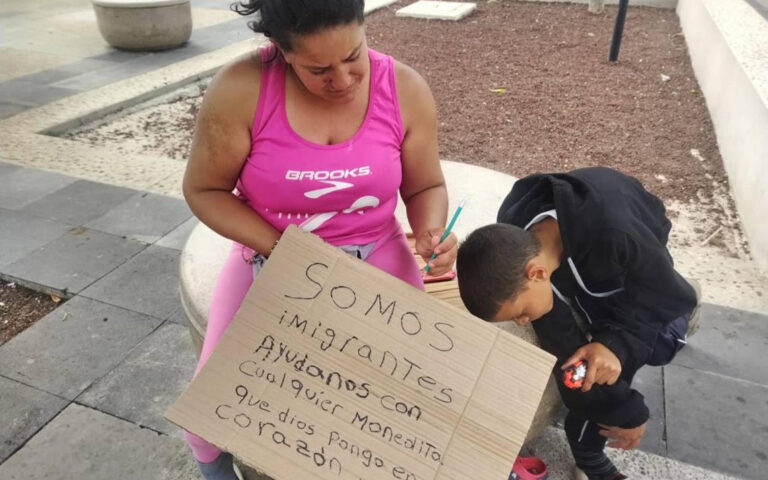 BROOKS
Somos
imigrantes
Ayudanos con
Cualquier Monedita
que dios Ponga en
corazón